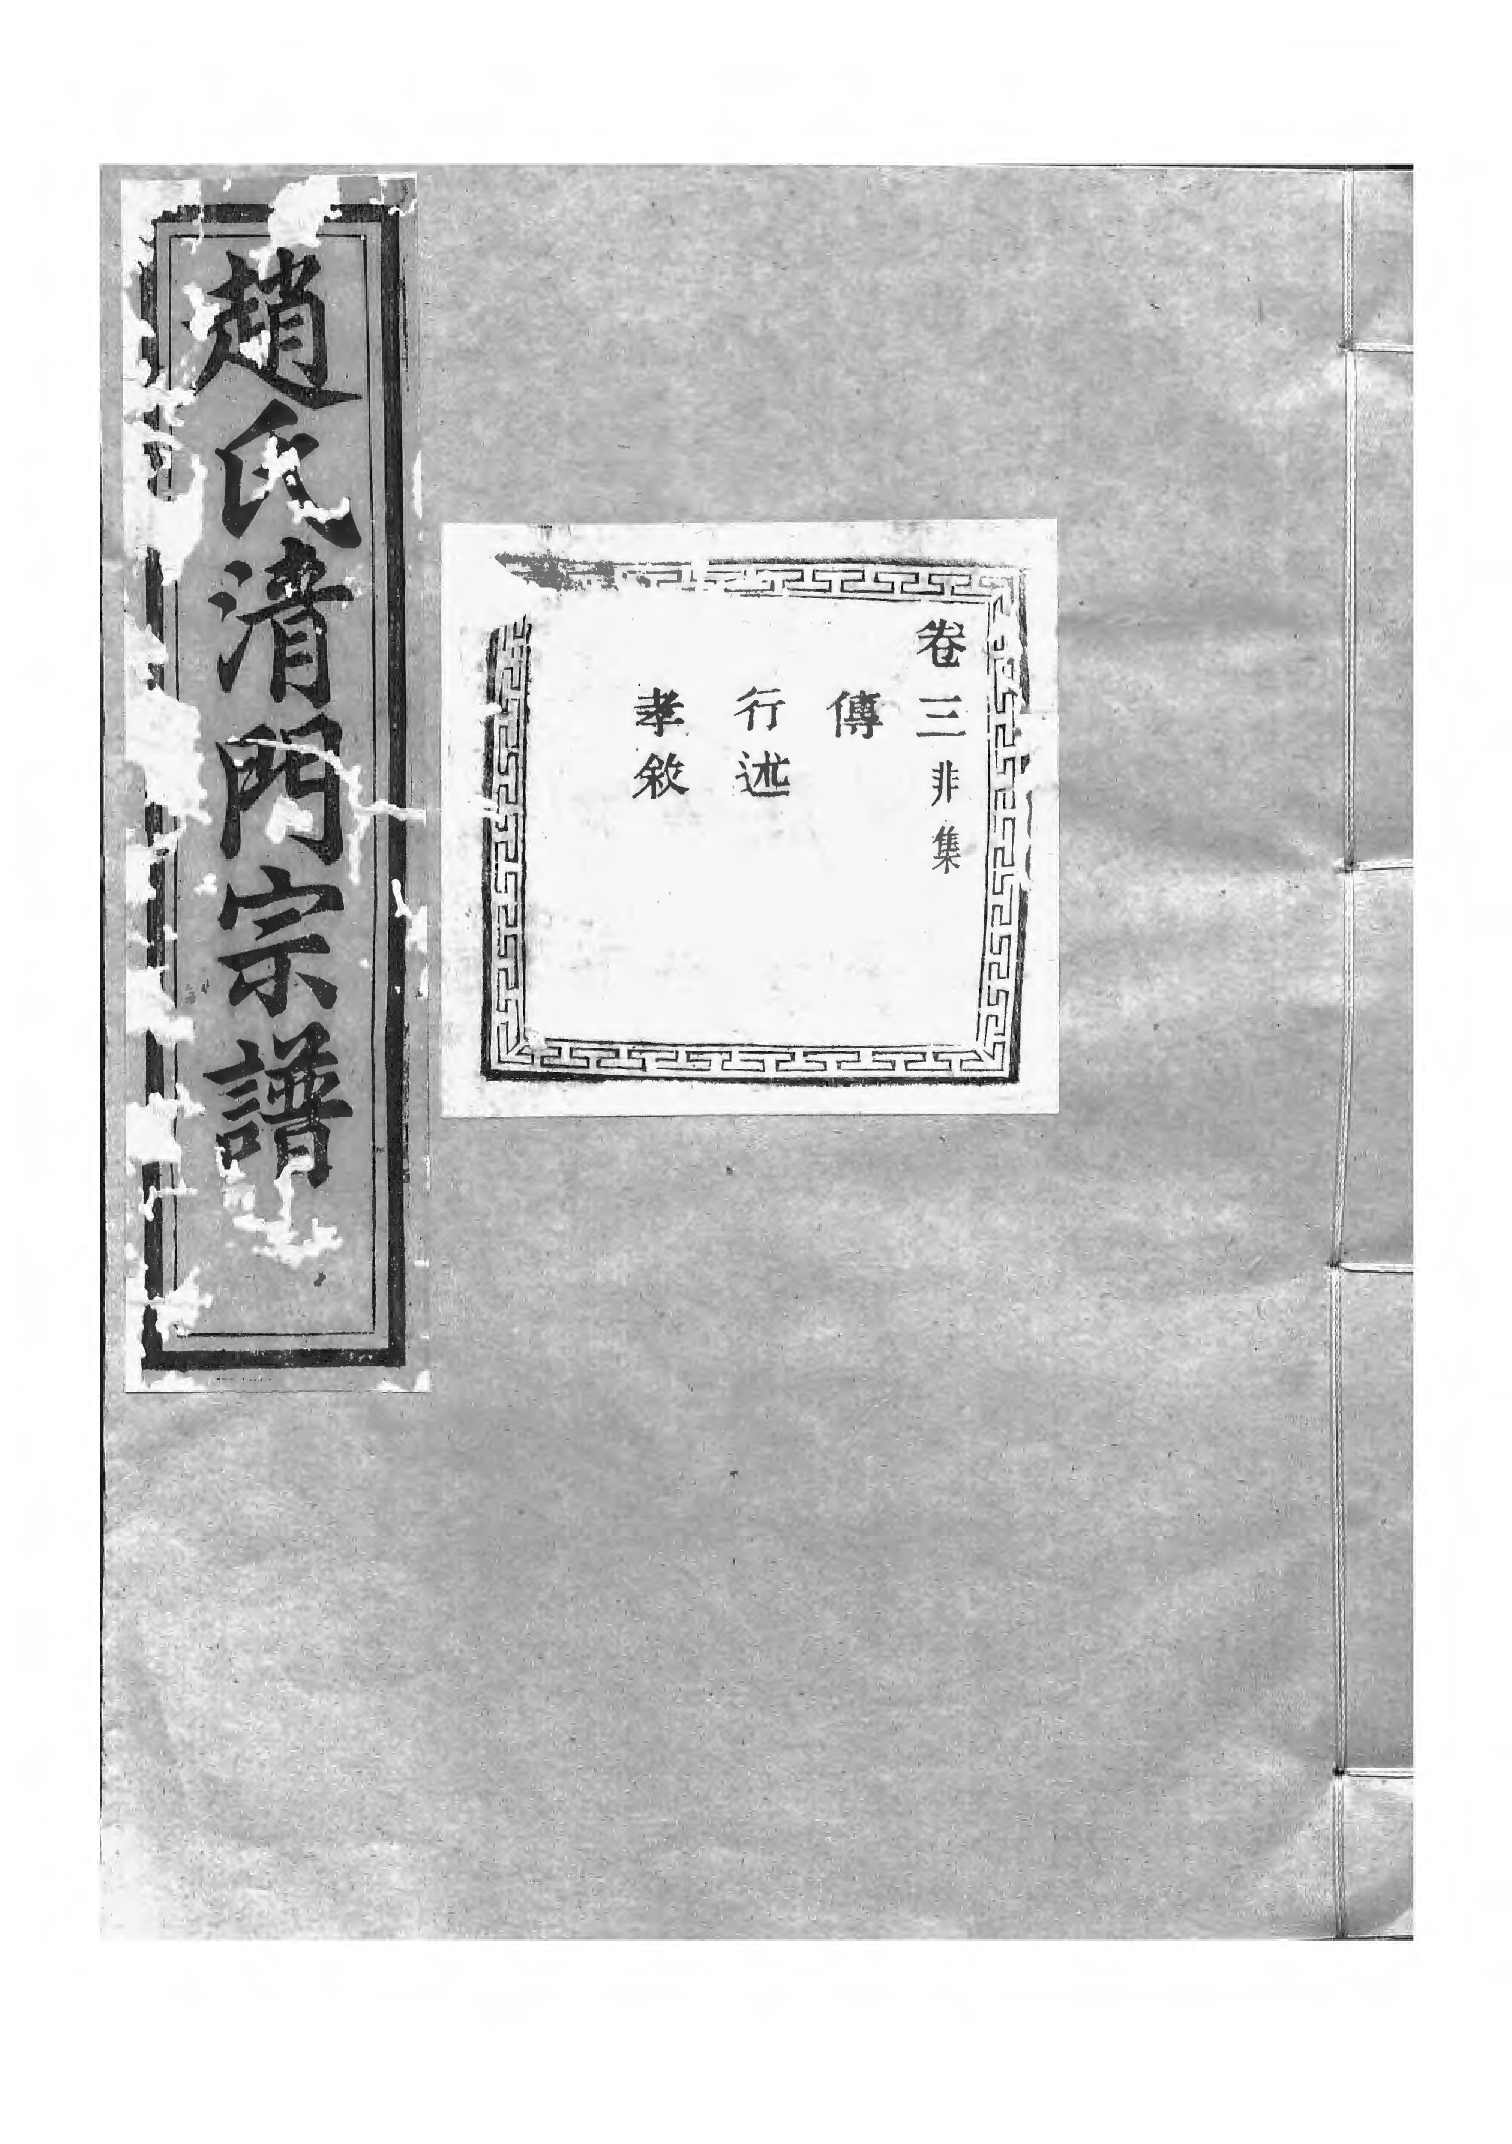 趙氏清門宗譜
卷三非集
傳
行述
孝敘